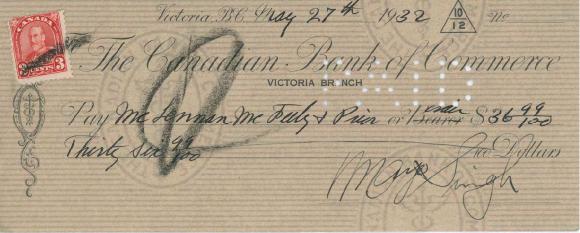 CANADA
3 CENTS 3
Victoria, B.C. May 27th 1932 10 12 No
The Canadian Bank of Commerce
VICTORIA BRANCH
PAID
Pay McLennan McFeely & Prior or Bearer order $36 99/100
Thirty Six 99/100 Dollars
Mayo Singh